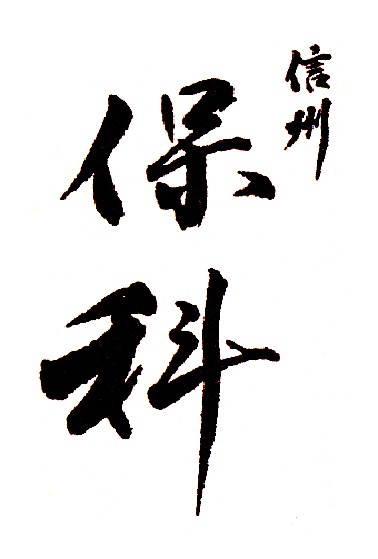 信州
保科